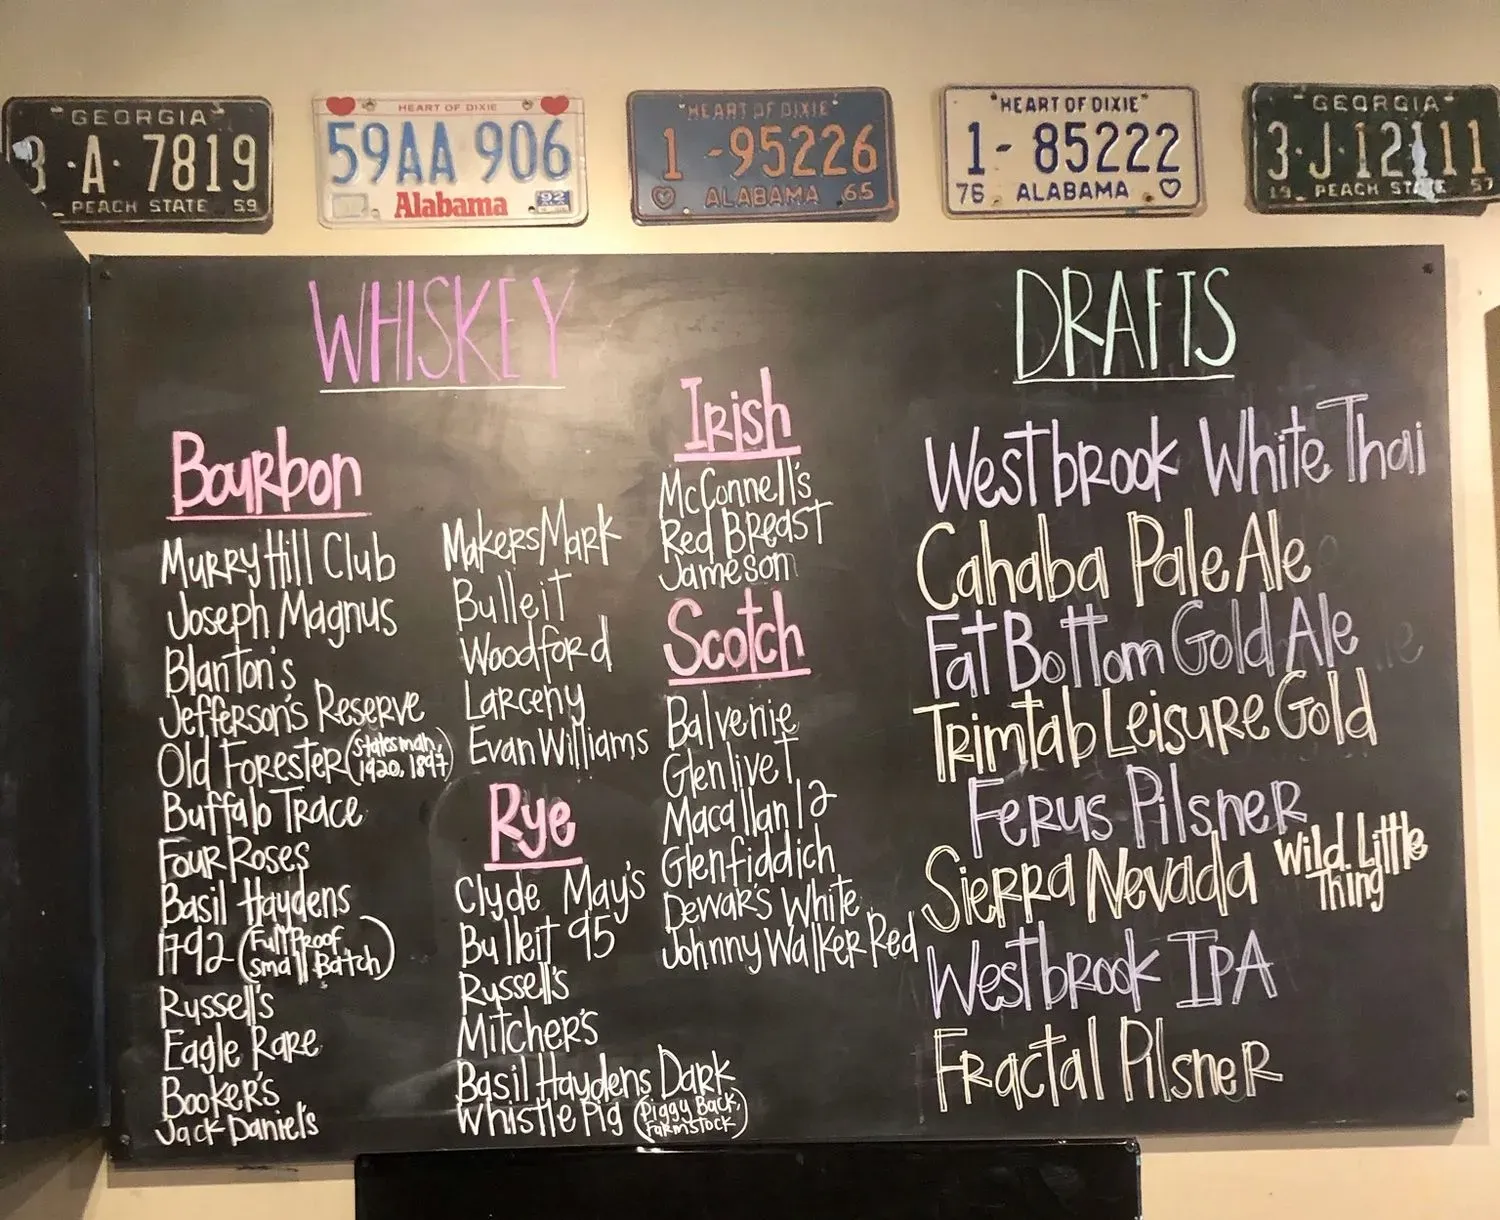 GEORGIA
3·A·7819
PEACH STATE 59
HEART OF DIXIE
59AA 906
Alabama 92
HEART OF DIXIE
1-95226
ALABAMA 65
HEART OF DIXIE
1-85222
76 ALABAMA
GEORGIA
3·J·12111
19 PEACH STATE 57
WHISKEY
Bourbon
Murry Hill Club
Joseph Magnus
Blanton's
Jefferson's Reserve
Old Forester (Statesman, 1920, 1897)
Buffalo Trace
Four Roses
Basil Haydens
1792 (Full Proof Small Batch)
Russell's
Eagle Rare
Booker's
Jack Daniel's
Makers Mark
Bulleit
Woodford
Larceny
Evan Williams
Rye
Clyde May's
Bulleit 95
Russell's
Mitcher's
Basil Haydens Dark
Whistle Pig (Piggy Back, Farmstock)
Irish
McConnell's
Red Breast
Jameson
Scotch
Balvenie
Glenlivet
Macallan 12
Glenfiddich
Dewar's White
Johnny Walker Red
DRAFTS
Westbrook White Thai
Cahaba Pale Ale
Fat Bottom Gold Ale
Trimtab Leisure Gold
Ferus Pilsner
Sierra Nevada Wild Little Thing
Westbrook IPA
Fractal Pilsner